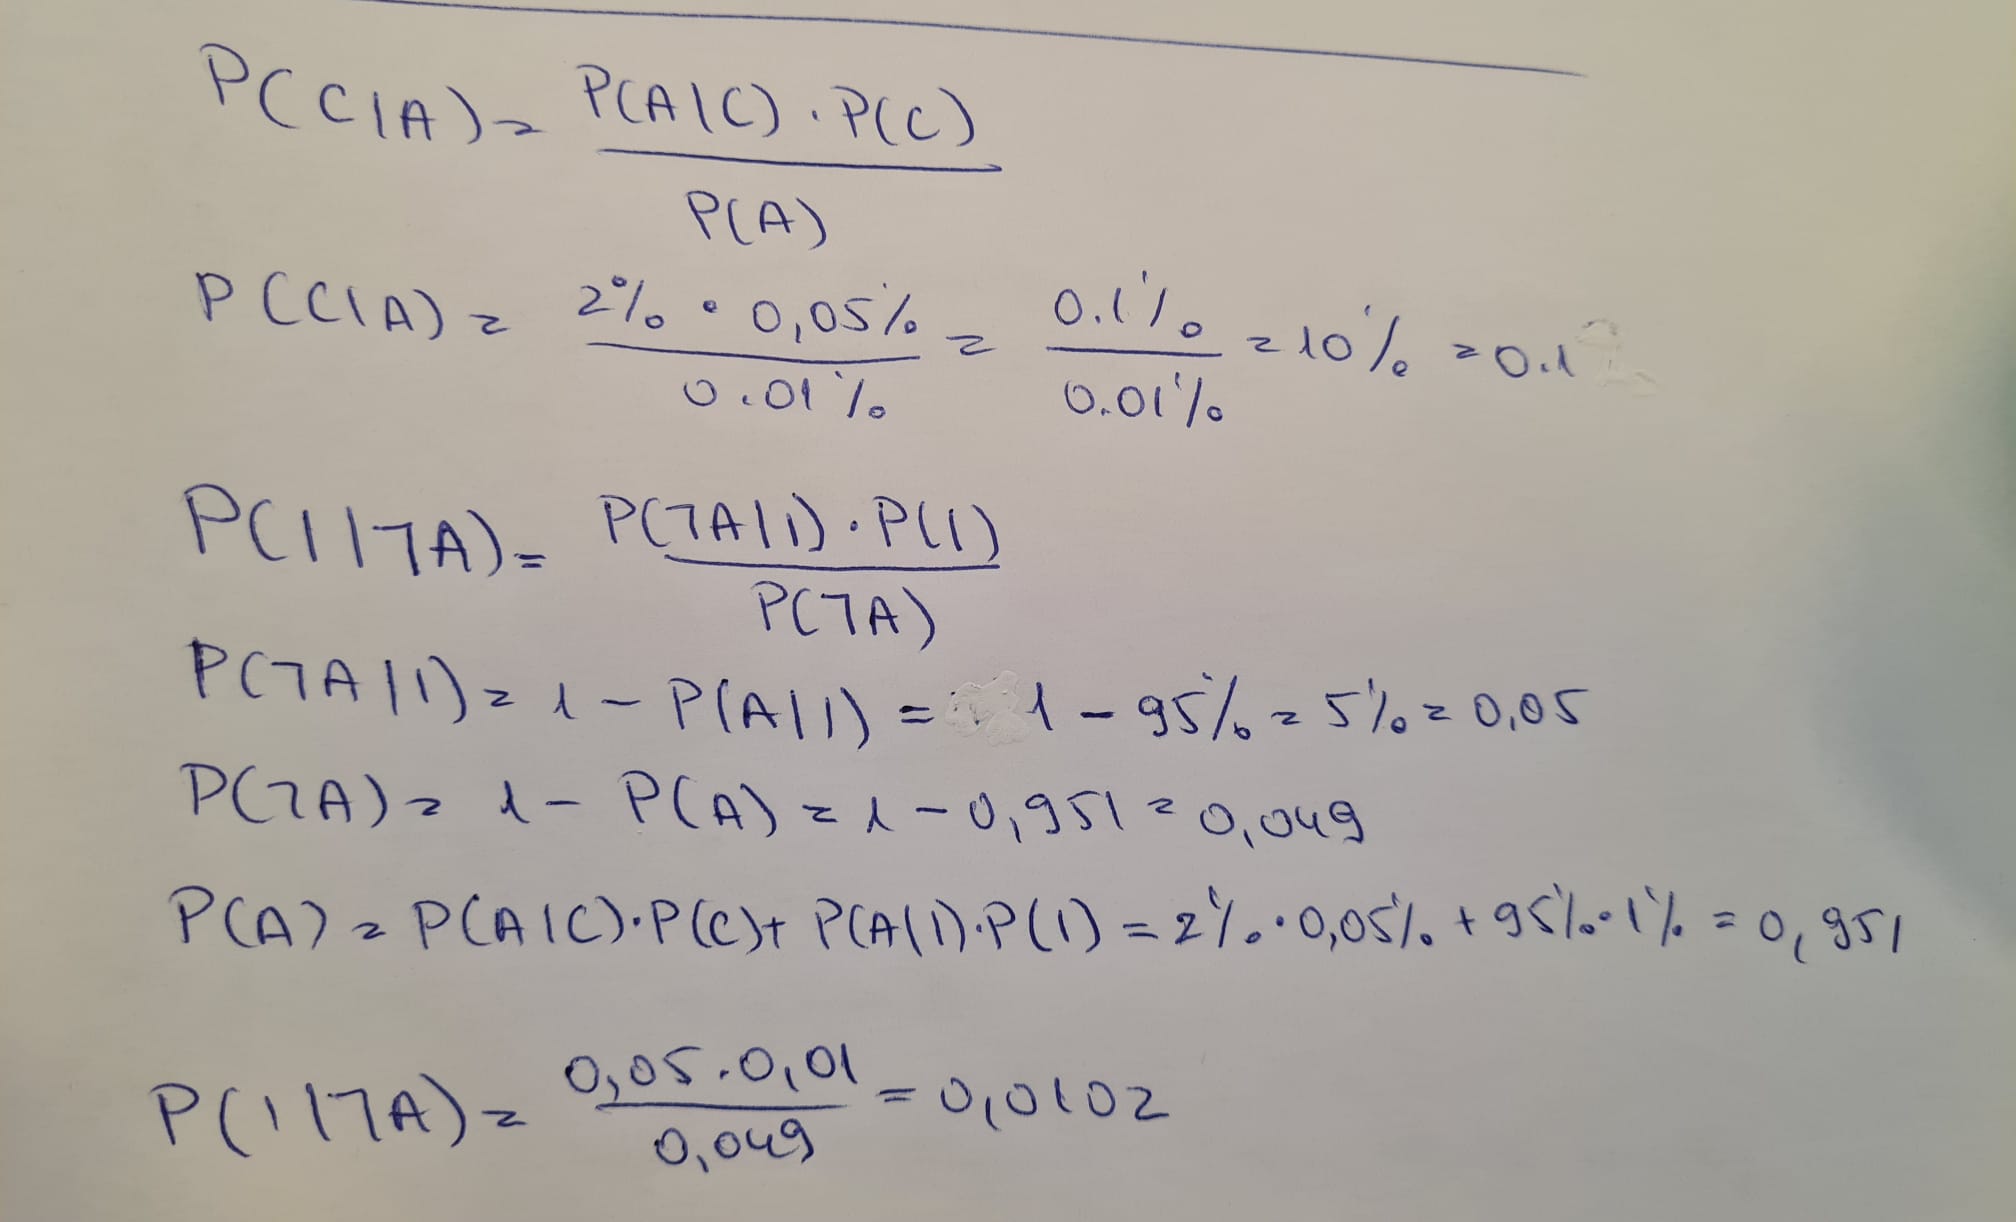 P(C|A) = P(A|C) · P(C) / P(A)
P(C|A) = 2% · 0,05% / 0.01% = 0.1% / 0.01% = 10% = 0.1
P(I|¬A) = P(¬A|I) · P(I) / P(¬A)
P(¬A|I) = 1 - P(A|I) = 1 - 95% = 5% = 0,05
P(¬A) = 1 - P(A) = 1 - 0,951 = 0,049
P(A) = P(A|C) · P(C) + P(A|I) · P(I) = 2% · 0,05% + 95% · 1% = 0,951
P(I|¬A) = 0,05 · 0,01 / 0,049 = 0,0102